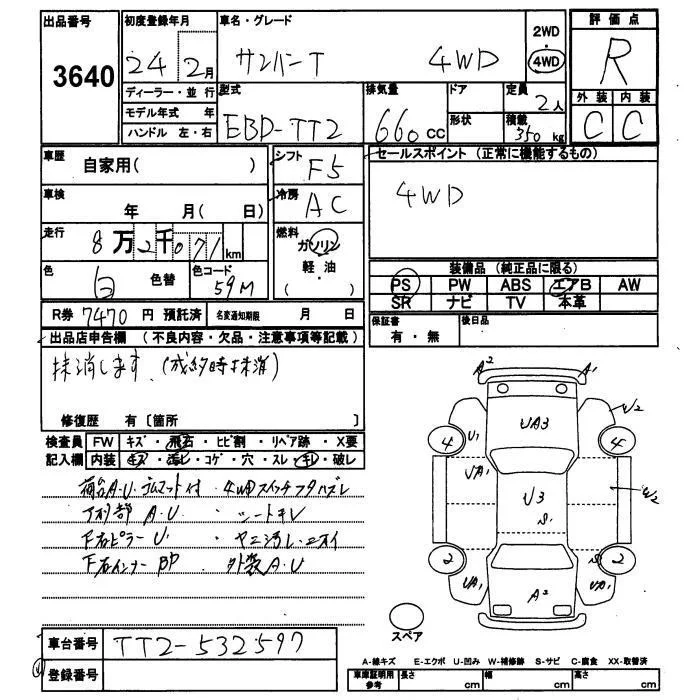 出品番号 初度登録年月 車名・グレード 2WD 評価点
3640 24 2月 サンバーT 4WD 4WD R
ディーラー・並行 型式 排気量 ドア 定員 外装 内装
モデル年式 年 EBD-TT2 660cc 2人 C C
ハンドル 左・右 形状 積載 350kg
車歴 自家用( ) シフト F5 セールスポイント (正常に機能するもの)
車検 年 月( 日) 冷房 AC 4WD
走行 8万2千071km 燃料 ガソリン
軽・油
( )
色 白 色替 色コード 59M 装備品 (純正品に限る)
PS PW ABS エアB AW
SR ナビ TV 本革
R券 7470 円 預託済 名変通知期限 月 日 保証書 有・無 後日品
出品店申告欄 (不良内容・欠品・注意事項等記載)
抹消します。(成約時抹消)
修復歴 有〔箇所 〕
検査員 FW キズ・飛石・ヒビ割・リペア跡・X要
記入欄 内装 キズ・汚レ・コゲ・穴・スレ・キレ・破レ
荷台A.U. ゴムマット付 4WDスイッチフタハズレ
下刈部 A.U シートキレ
F右ピラー U1 ヤニ汚レ・ニオイ
F右インナー BP 外装A.U
A2 A1
UA3 W2
4 U1 4
UA1 U3 W2
S1
2 UA1 A2 UA1 S 2
スペア
車台番号 TT2-532597
登録番号
A-線キズ E-エクボ U-凹み W-補修跡 S-サビ C-腐食 XX-取替済
車庫証明用参考 長さ cm 幅 cm 高さ cm